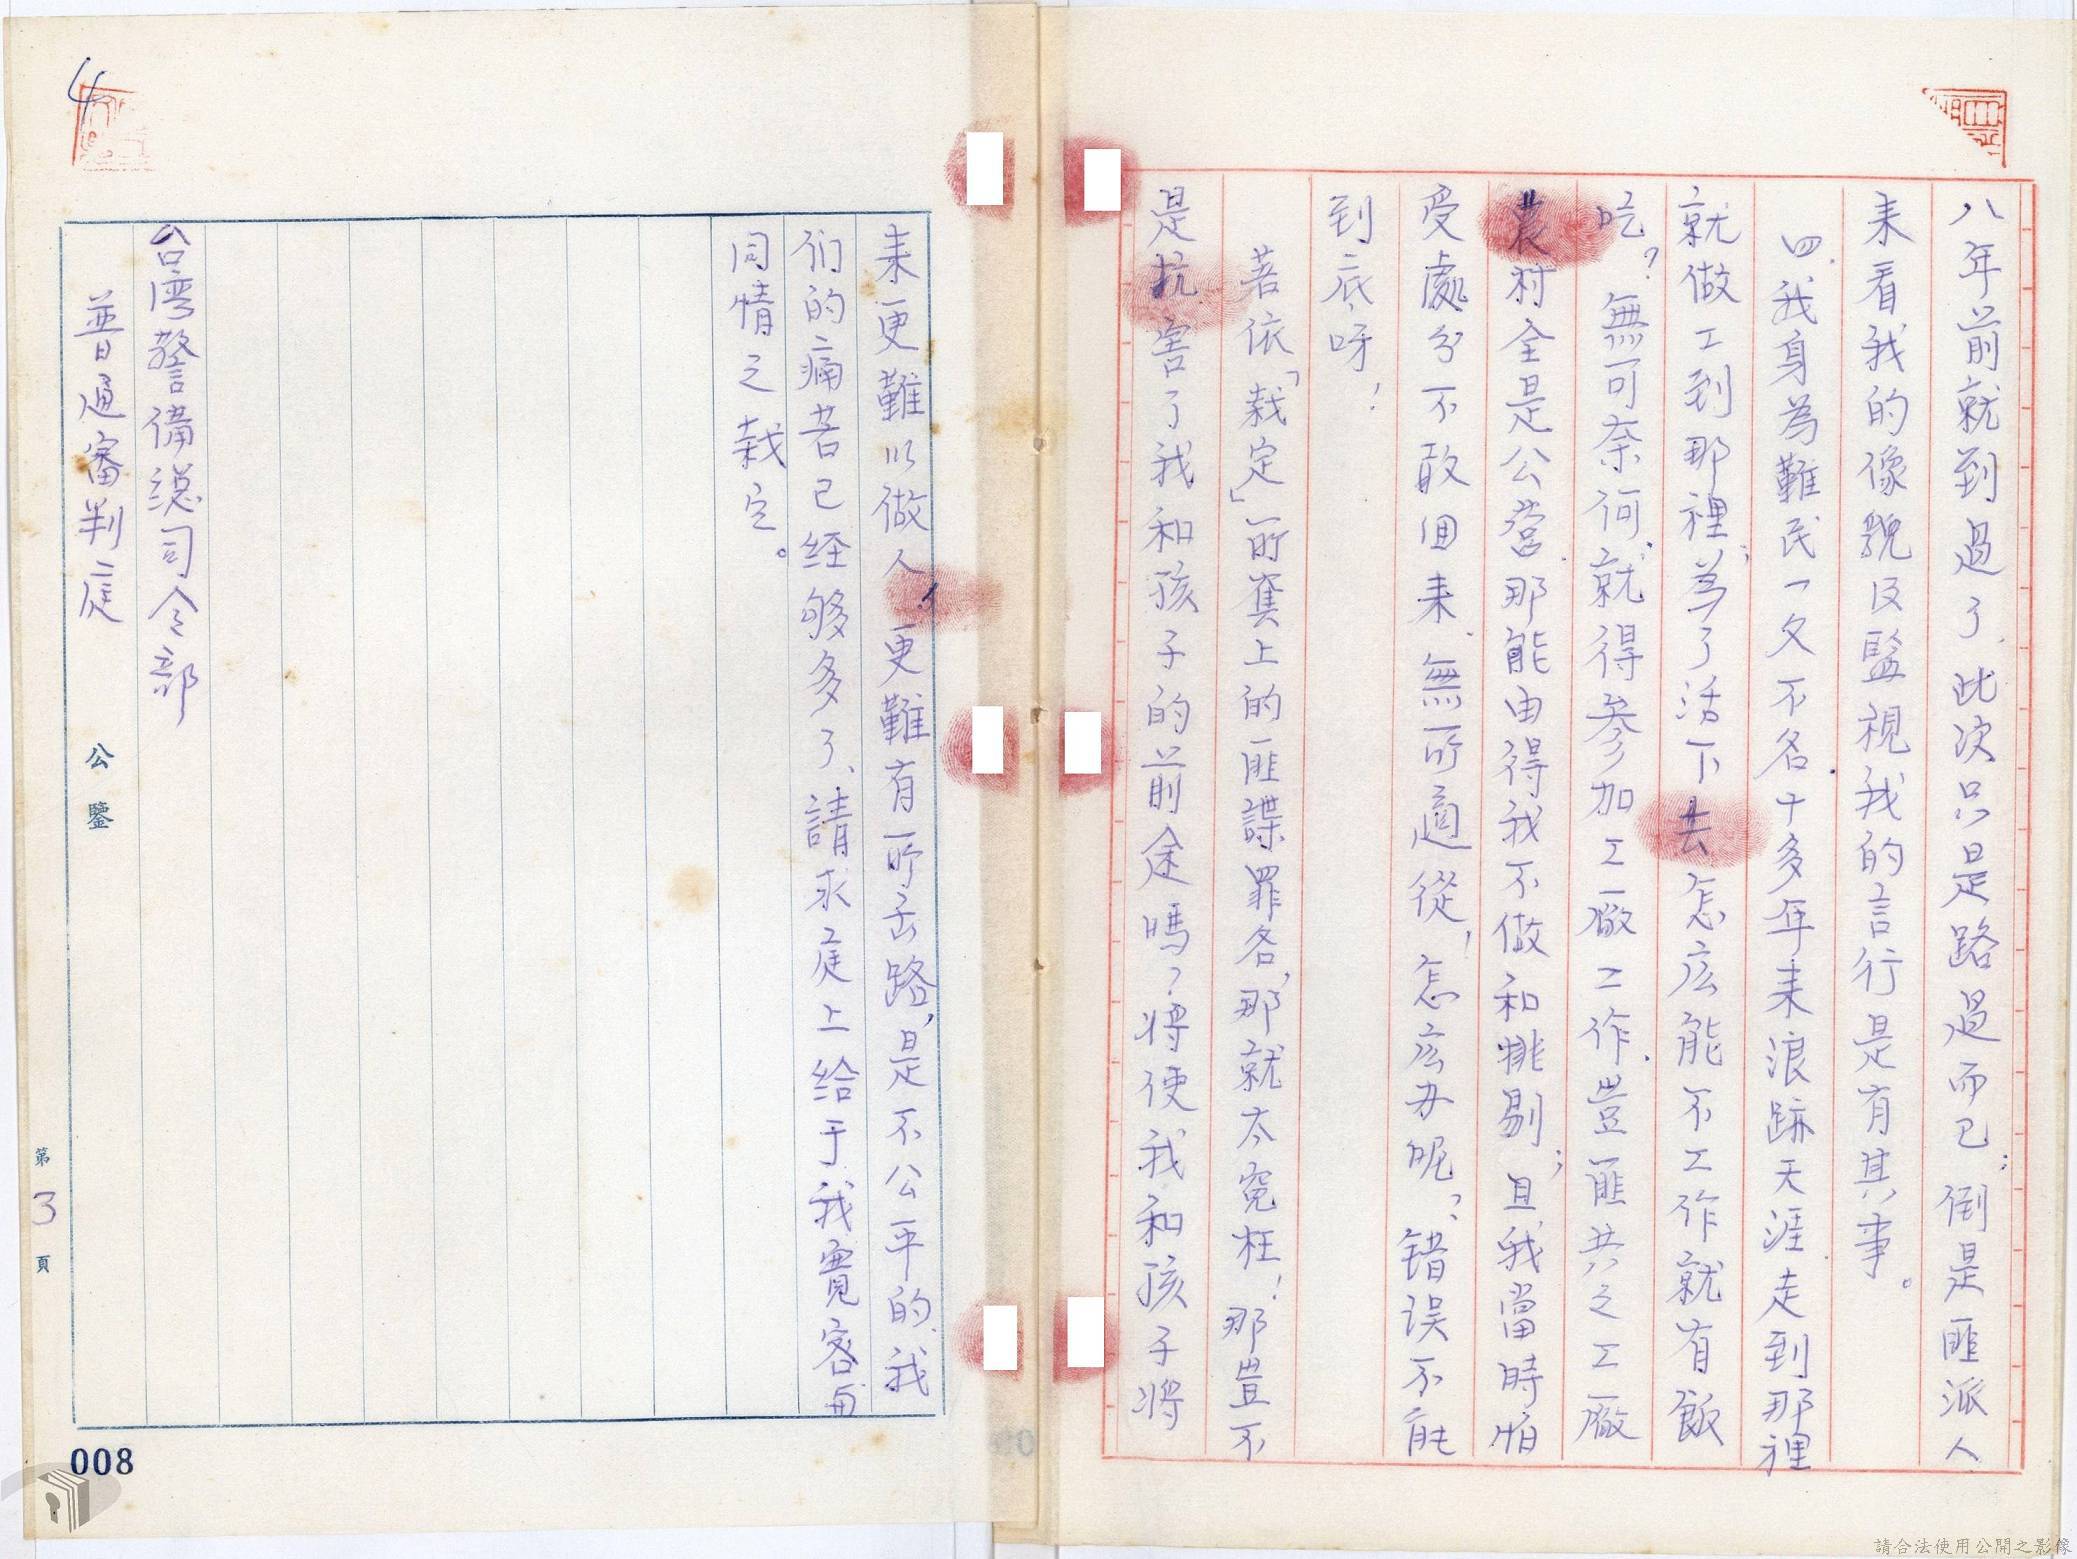 八年前就到過了、此次只是路過而已；倒是匪派人
来看我的像貌及監視我的言行是有其事。
四、我身為難民一文不名、十多年来浪跡天涯、走到那裡
就做工到那裡；為了活下去怎広能不工作就有飯
吃？無可奈何、就得參加工廠工作、豈匪共之工廠
農村全是公営、那能由得我不做和挑剔；且我當時怕
受處分不敢回来、無所適從！怎広办呢？、錯误不能
到底呀！
若依「裁定」所糞上的匪諜罪名，那就太寃枉！那豈不
是坑害了我和孩子的前途嗎？将使我和孩子将
来更難以做人、更難有所去路，是不公平的、我
们的痛苦已经够多了、請求庭上给于我寬容与
同情之裁定。
台湾警備総司令部
普通審判庭
公鑒
第3頁
008
4
請合法使用公開之影像